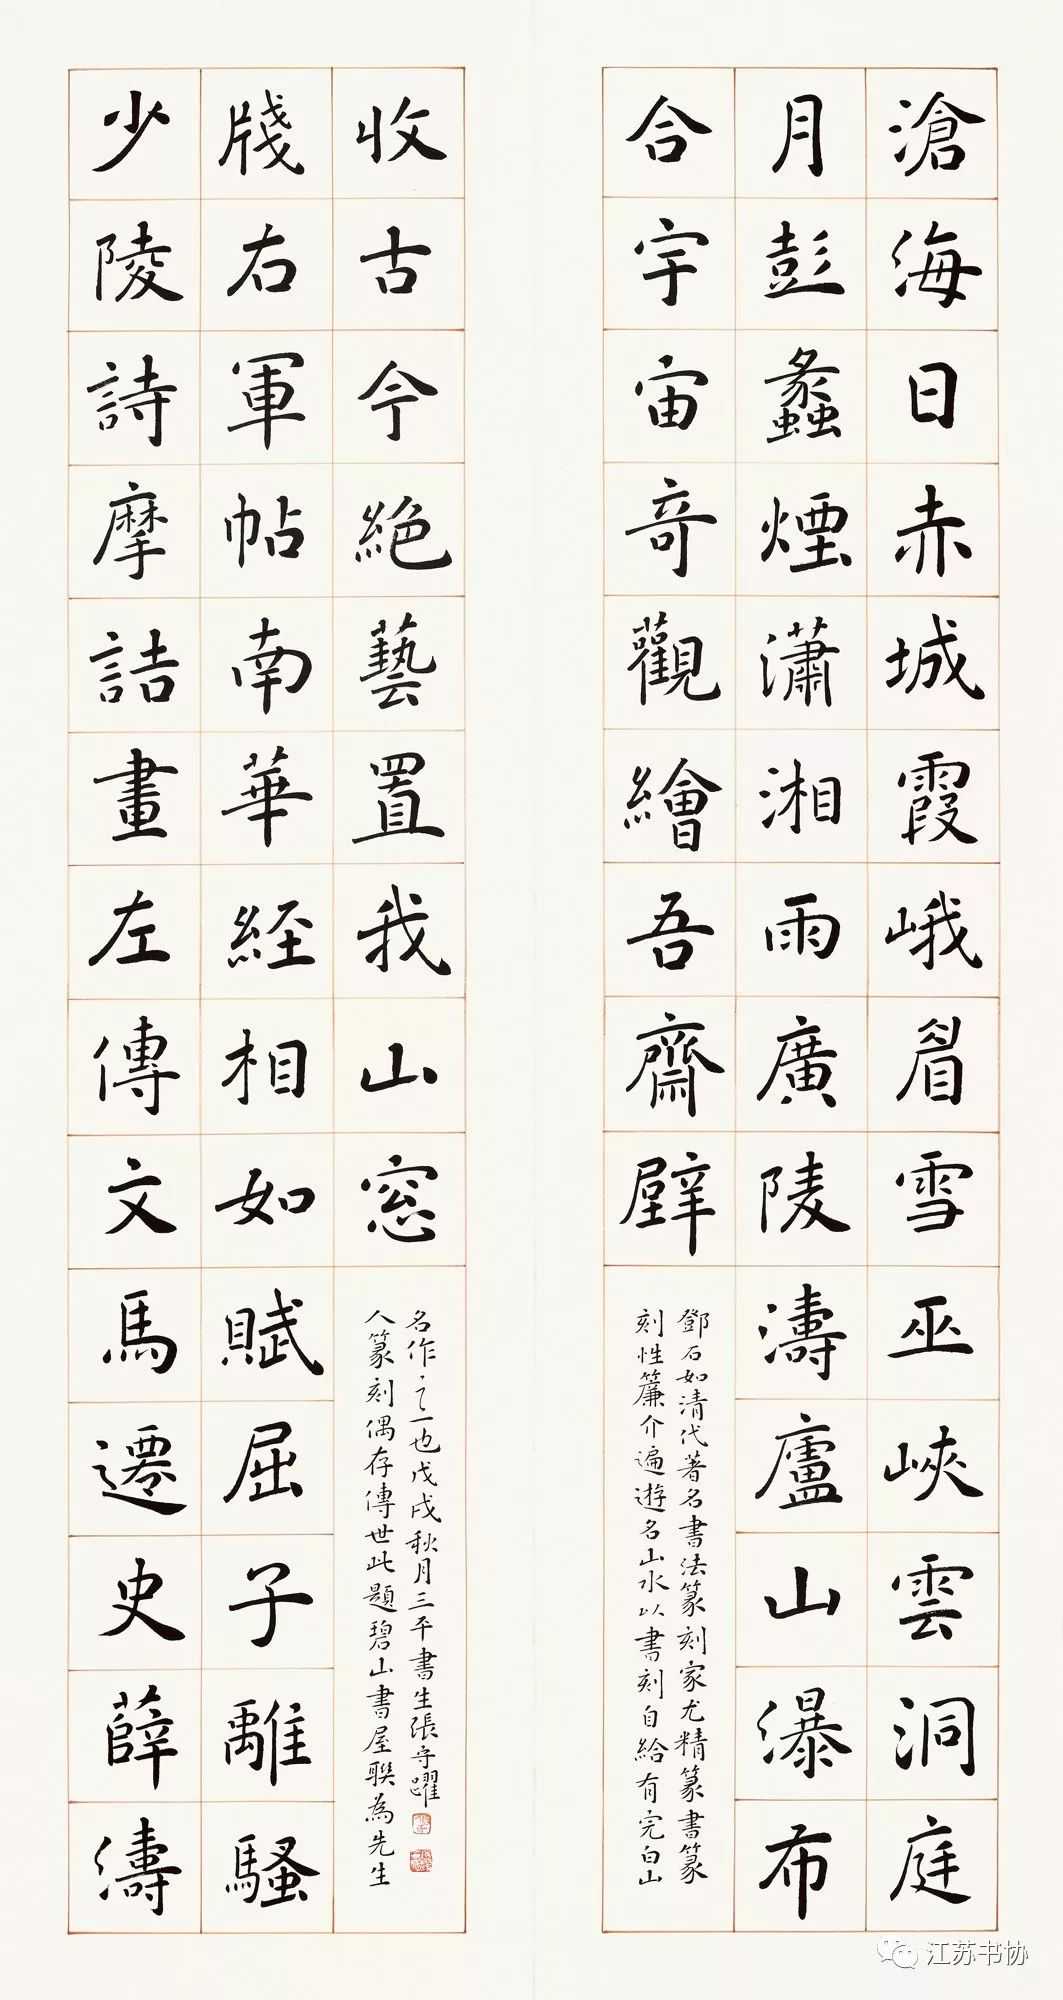 滄海日赤城霞峨眉雪巫峽雲洞庭
月彭蠡煙瀟湘雨廣陵濤廬山瀑布
合宇宙奇觀繪吾齋壁
鄧石如清代著名書法篆刻家尤精篆書篆
刻性簾介遍遊名山水以書刻自給有完白山
少陵詩摩詰畫左傳文馬遷史薛濤
牋右軍帖南華經相如賦屈子離騷
收古今絶藝置我山窓
人篆刻偶存傳世此題碧山書屋聯為先生
名作之一也戊戌秋月三平書生張守躍
江苏书协